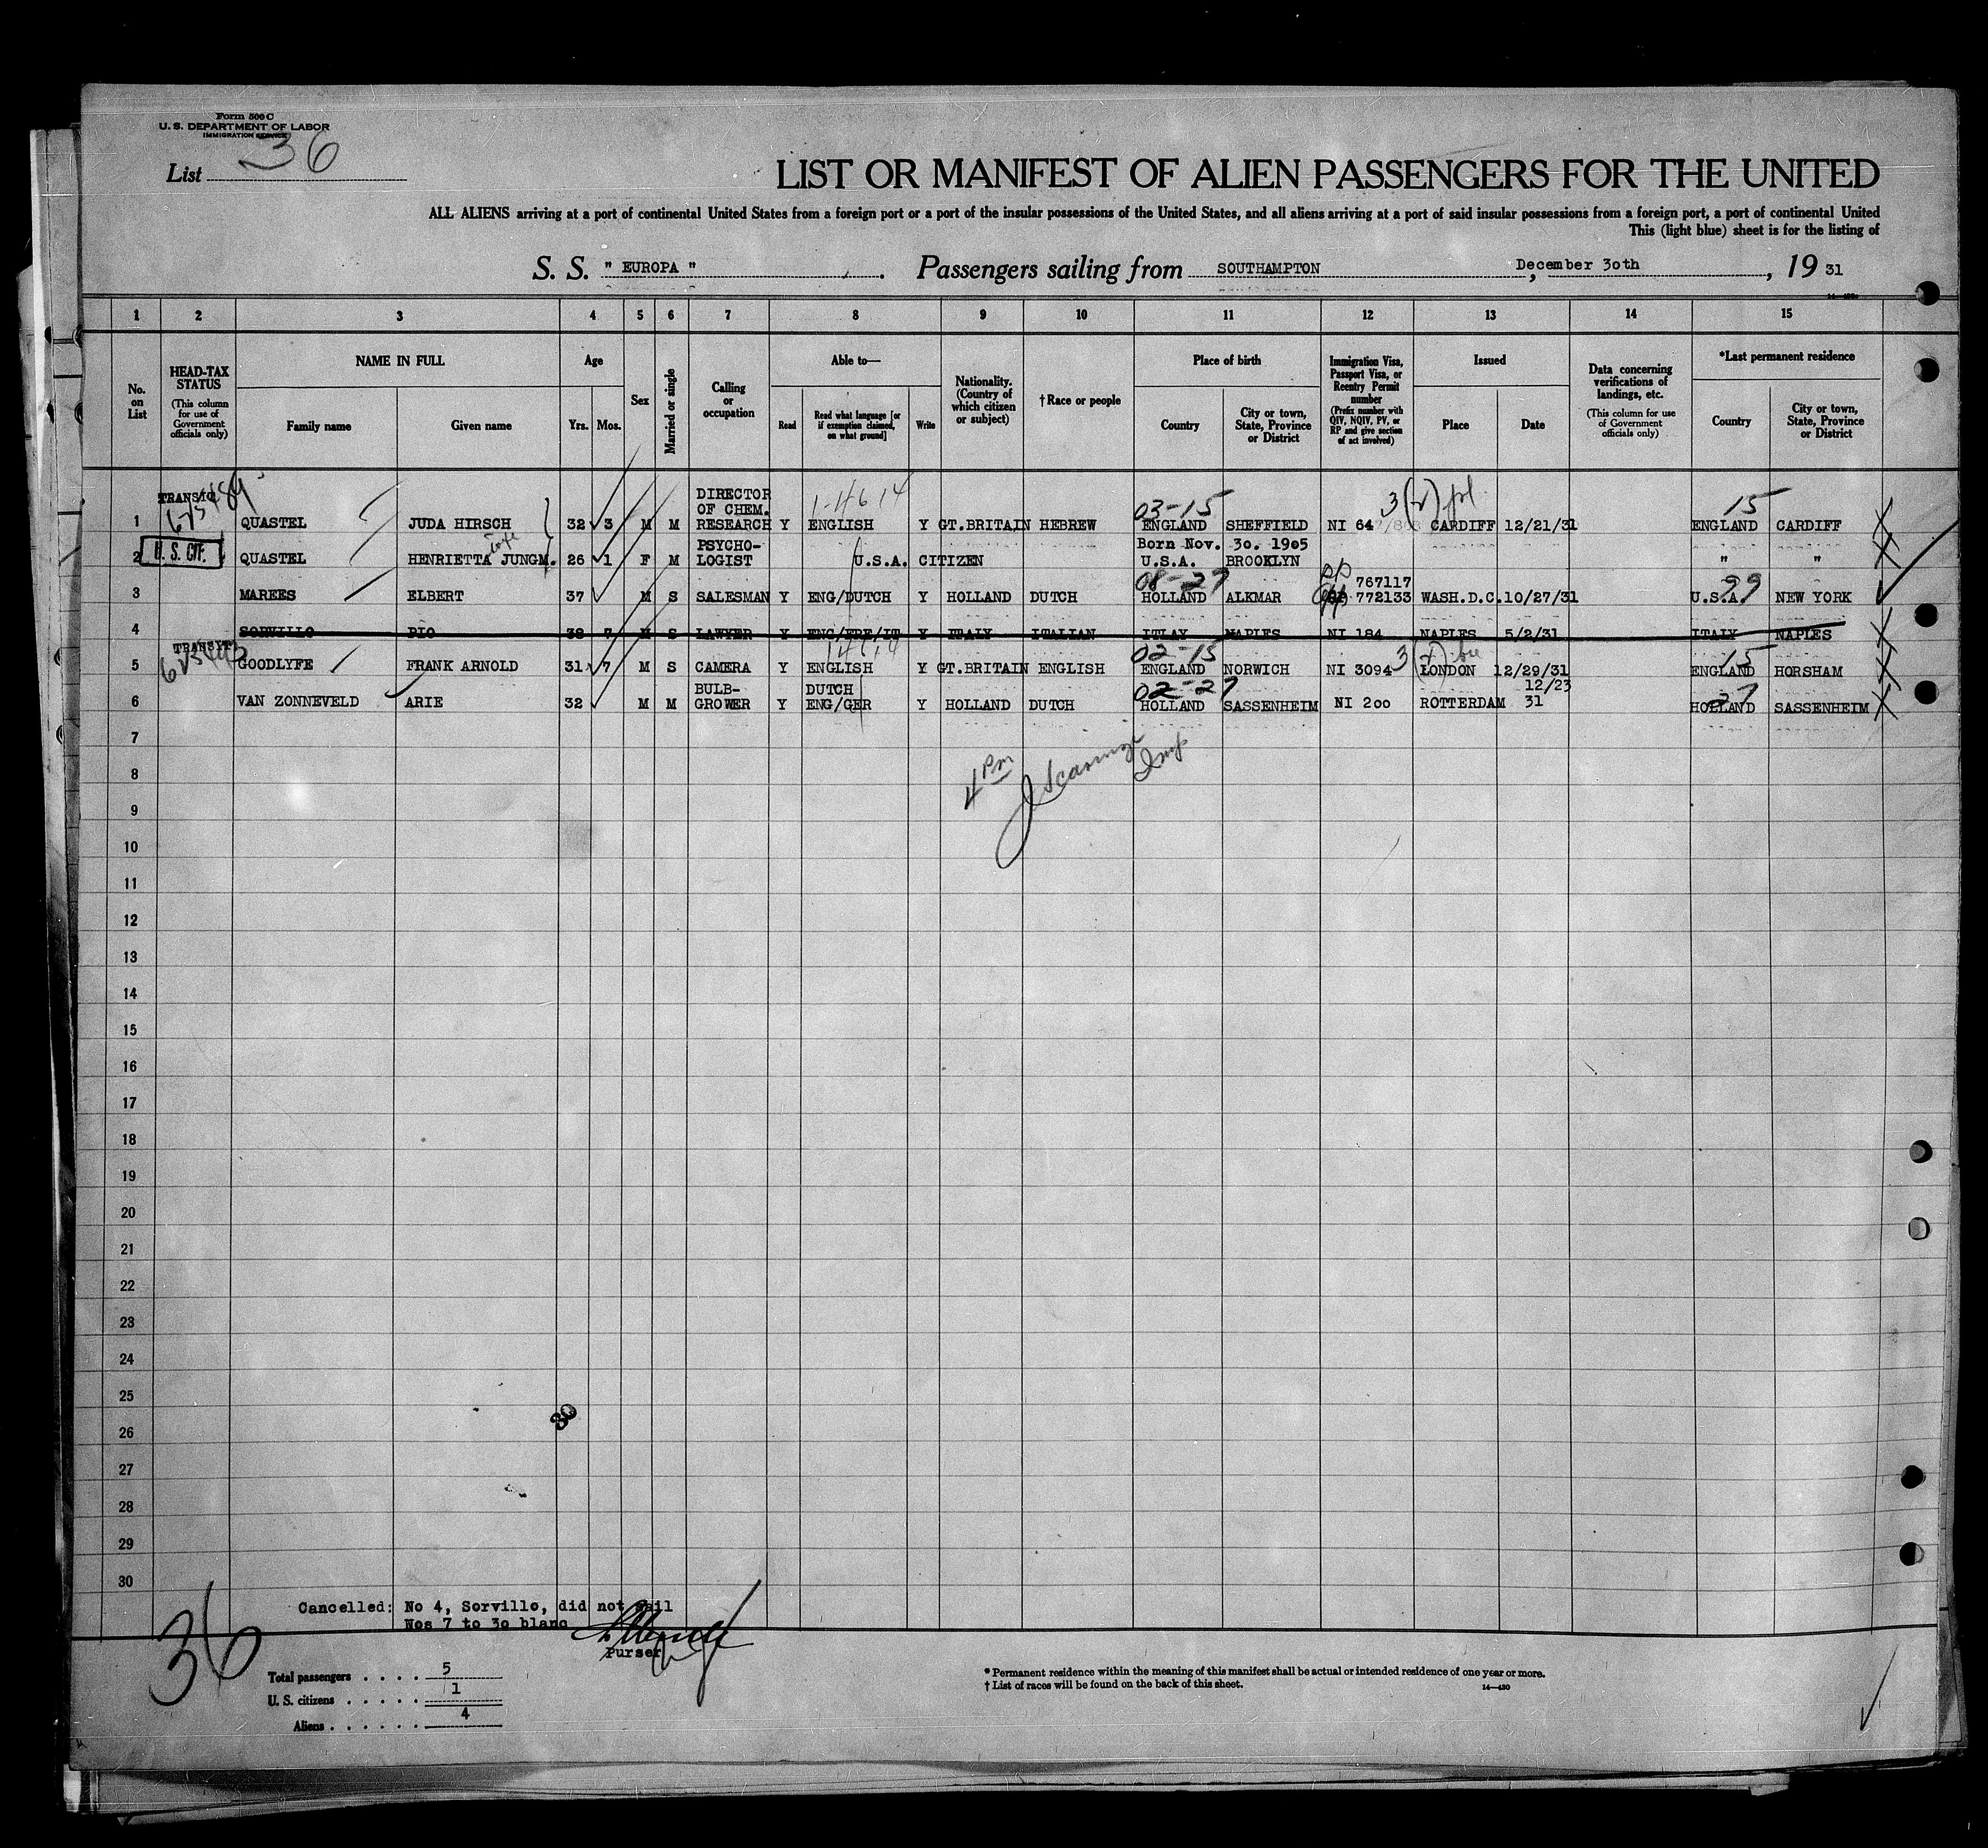 Form 500 C
U. S. DEPARTMENT OF LABOR
IMMIGRATION SERVICE
List 36
LIST OR MANIFEST OF ALIEN PASSENGERS FOR THE UNITED
ALL ALIENS arriving at a port of continental United States from a foreign port or a port of the insular possessions of the United States, and all aliens arriving at a port of said insular possessions from a foreign port, a port of continental United
This (light blue) sheet is for the listing of
S. S. " EUROPA ". Passengers sailing from SOUTHAMPTON, December 30th, 19 31
1 2 3 4 5 6 7 8 9 10 11 12 13 14 15
No. on List
HEAD-TAX STATUS (This column for use of Government officials only)
NAME IN FULL
Family name
Given name
Age
Yrs. Mos.
Sex
Married or single
Calling or occupation
Able to—
Read
Read what language [or if exemption claimed, on what ground]
Write
Nationality. (Country of which citizen or subject)
†Race or people
Place of birth
Country
City or town, State, Province or District
Immigration Visa, Passport Visa, or Reentry Permit number (Prefix number with QIV, NQIV, PV, or RP and give section of act involved)
Issued
Place
Date
Data concerning verifications of landings, etc. (This column for use of Government officials only)
*Last permanent residence
Country
City or town, State, Province or District
TRANSIT
DIRECTOR OF CHEM.
03-15
15
1 QUASTEL JUDA HIRSCH 32 3 M M RESEARCH Y ENGLISH Y GT.BRITAIN HEBREW ENGLAND SHEFFIELD NI 64 CARDIFF 12/21/31 ENGLAND CARDIFF
U. S. CIT.
wife
PSYCHO-
Born Nov. 30. 1905
2 QUASTEL HENRIETTA JUNGM. 26 1 F M LOGIST U.S.A. CITIZEN U.S.A. BROOKLYN " "
08-27
767117
99
3 MAREES ELBERT 37 M S SALESMAN Y ENG/DUTCH Y HOLLAND DUTCH HOLLAND ALKMAR 772133 WASH.D.C. 10/27/31 U.S.A. NEW YORK
4 SORVILLO PIO 38 7 M S LAWYER Y ENG/FRE/IT Y ITALY ITALIAN ITLAY NAPLES NI 184 NAPLES 5/2/31 ITALY NAPLES
TRANSIT
02-15
15
5 GOODLYFE FRANK ARNOLD 31 7 M S CAMERA Y ENGLISH Y GT.BRITAIN ENGLISH ENGLAND NORWICH NI 3094 LONDON 12/29/31 ENGLAND HORSHAM
BULB-
DUTCH
02-27
12/23
27
6 VAN ZONNEVELD ARIE 32 M M GROWER Y ENG/GER Y HOLLAND DUTCH HOLLAND SASSENHEIM NI 200 ROTTERDAM 31 HOLLAND SASSENHEIM
4 PM
Insp
7
8
9
10
11
12
13
14
15
16
17
18
19
20
21
22
23
24
25
30
26
27
28
29
30
Cancelled: No 4, Sorvillo, did not sail
Nos 7 to 30 blanc
Purser
36
Total passengers . . . . 5
U. S. citizens . . . . . 1
Aliens . . . . . . 4
* Permanent residence within the meaning of this manifest shall be actual or intended residence of one year or more.
† List of races will be found on the back of this sheet.
14—430